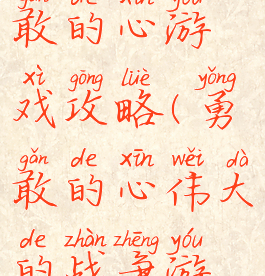 gǎn de xīn yóu
敢的心游
xì gōng lüè yǒng
戏攻略(勇
gǎn de xīn wěi dà
敢的心伟大
de zhàn zhēng yóu
的战争游